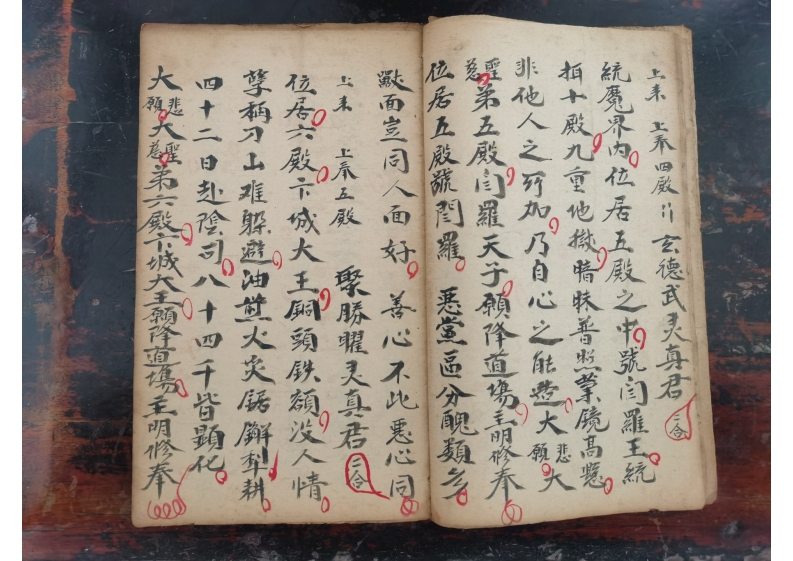 上来 上奉四殿 玄德武灵真君 二合
統魔界内位居五殿之中號閆羅王統
十殿九重地獄暗昧普照業鏡高懸
非他人之所加乃自心之能造大悲願大
聖慈第五殿閆羅天子願降道場主明修奉
位居五殿號閆羅 惡黨區分醜類
獸面豈同人面好 善心不比惡心同
上来 上奉五殿 聚勝曜灵真君 二合
位居六殿卞城大王銅頭鉄額没人情
孽稱刀山难躲避油煎火炎鋸解犁耕
四十二日赴陰司八十四千皆顕化
大悲願大聖慈第六殿卞城大王願降道場主明修奉